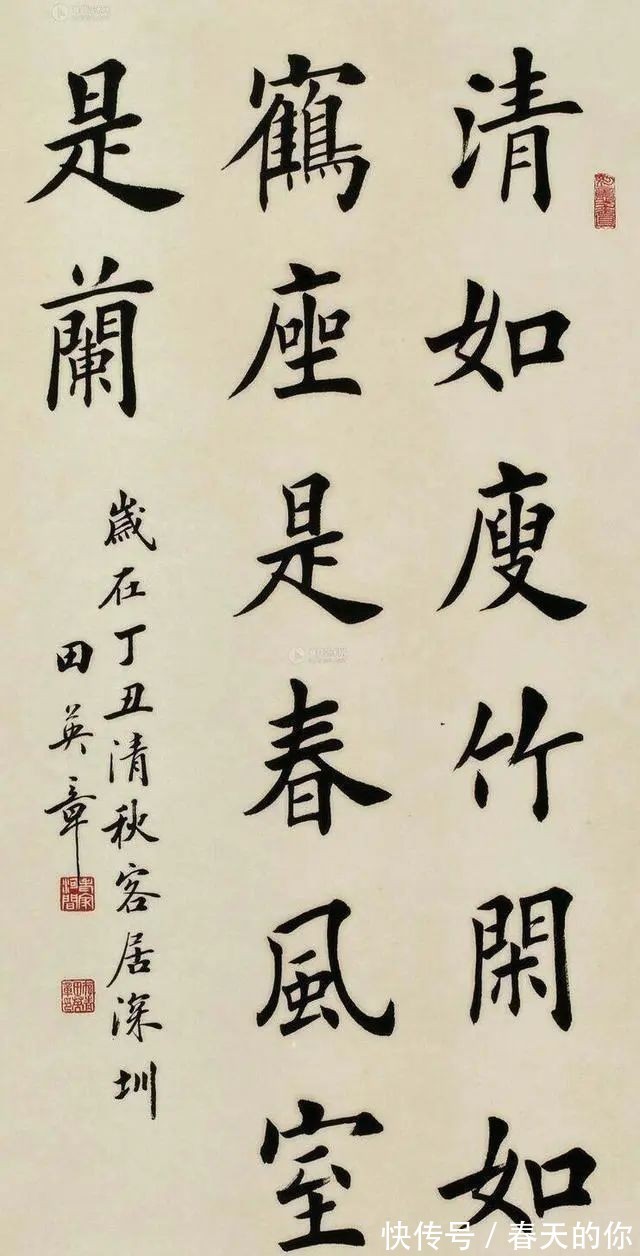 清如瘦竹閑如
鶴座是春風室
是蘭
歲在丁丑清秋客居深圳
田英章
快传号/春天的你